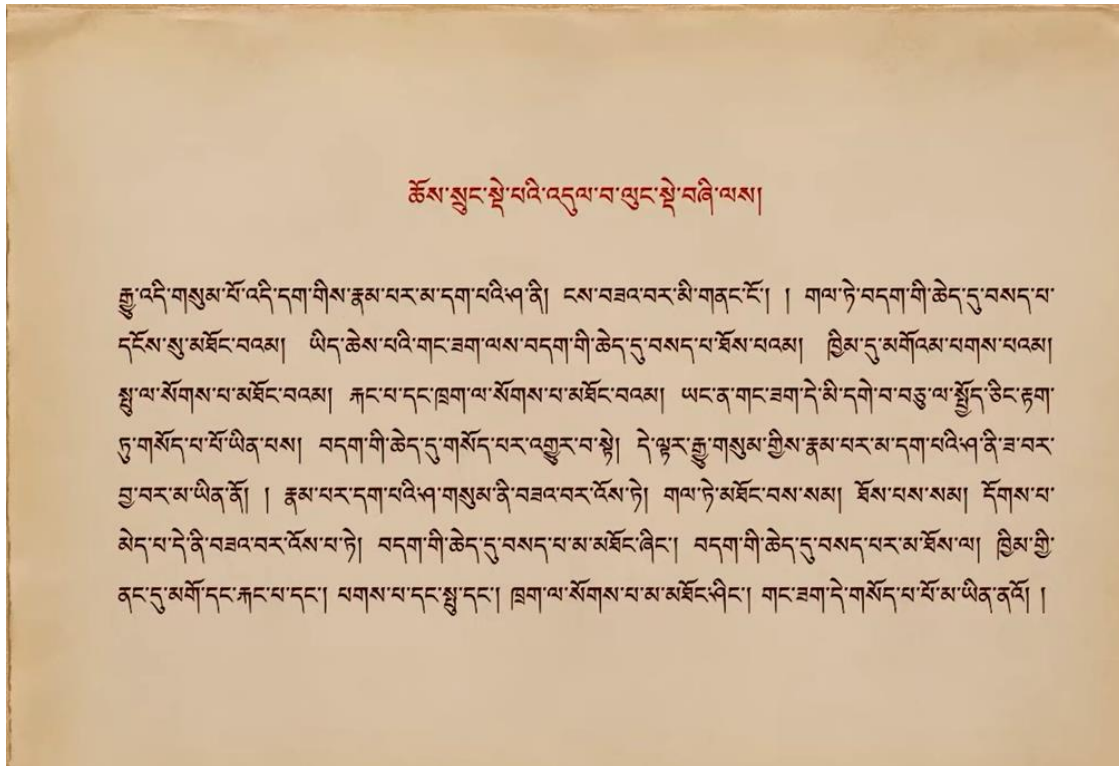 ཆོས་སྲུང་སྡེ་པའི་འདུལ་བ་ལུང་སྡེ་བཞི་ལས།
རྒྱུ་འདི་གསུམ་པོ་འདི་དག་གིས་རྣམ་པར་མ་དག་པའི་ཤ་ནི། ངས་བཟའ་བར་མི་གནང་ངོ་། ། གལ་ཏེ་བདག་གི་ཆེད་དུ་བསད་པ་
དངོས་སུ་མཐོང་བའམ། ཡིད་ཆེས་པའི་གང་ཟག་ལས་བདག་གི་ཆེད་དུ་བསད་པ་ཐོས་པའམ། ཁྱིམ་དུ་མགོའམ་པགས་པའམ།
སྤུ་ལ་སོགས་པ་མཐོང་བའམ། རྐང་པ་དང་ཁྲག་ལ་སོགས་པ་མཐོང་བའམ། ཡང་ན་གང་ཟག་དེ་མི་དགེ་བ་བཅུ་ལ་སྤྱོད་ཅིང་རྟག་
ཏུ་གསོད་པ་པོ་ཡིན་པས། བདག་གི་ཆེད་དུ་གསོད་པར་འགྱུར་བ་སྟེ། དེ་ལྟར་རྒྱུ་གསུམ་གྱིས་རྣམ་པར་མ་དག་པའི་ཤ་ནི་ཟ་བར་
བྱ་བར་མ་ཡིན་ནོ། ། རྣམ་པར་དག་པའི་ཤ་གསུམ་ནི་བཟའ་བར་འོས་ཏེ། གལ་ཏེ་མཐོང་བས་སམ། ཐོས་པས་སམ། དོགས་པ་
མེད་པ་དེ་ནི་བཟའ་བར་འོས་པ་ཏེ། བདག་གི་ཆེད་དུ་བསད་པ་མ་མཐོང་ཞིང་། བདག་གི་ཆེད་དུ་བསད་པར་མ་ཐོས་ལ། ཁྱིམ་གྱི་
ནང་དུ་མགོ་དང་རྐང་པ་དང་། པགས་པ་དང་སྤུ་དང་། ཁྲག་ལ་སོགས་པ་མ་མཐོང་ཤིང་། གང་ཟག་དེ་གསོད་པ་པོ་མ་ཡིན་ནའོ། །